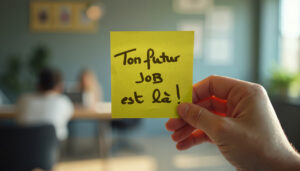 Ton futur
JOB
est là !